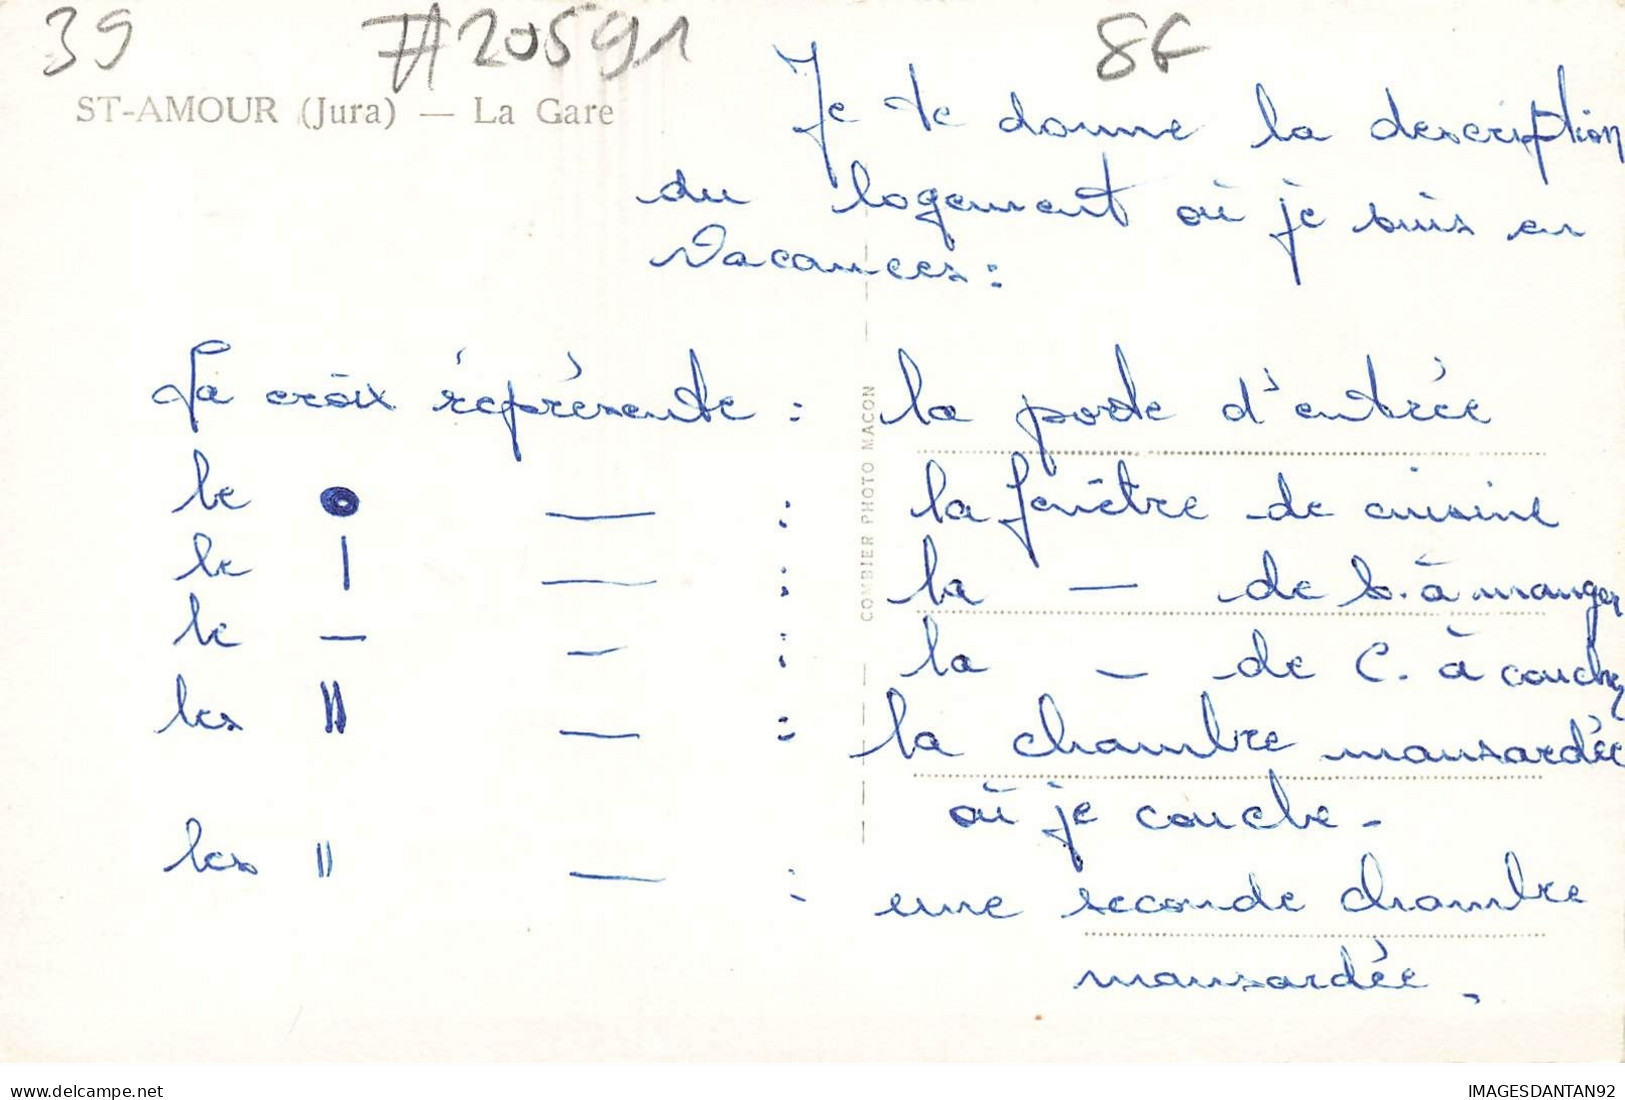 39 #20591 8F
ST-AMOUR (Jura) — La Gare
Je te donne la description
du logement où je suis en
vacances :
La croix représente : la porte d'entrée
le o — : la fenêtre de cuisine
le | — : la — de s. à manger
le — — : la — de C. à coucher
les || — : la chambre mansardée
où je couche -
les || — : une seconde chambre
mansardée.
COMBIER PHOTO MACON
delcampe.net
IMAGESDANTAN92